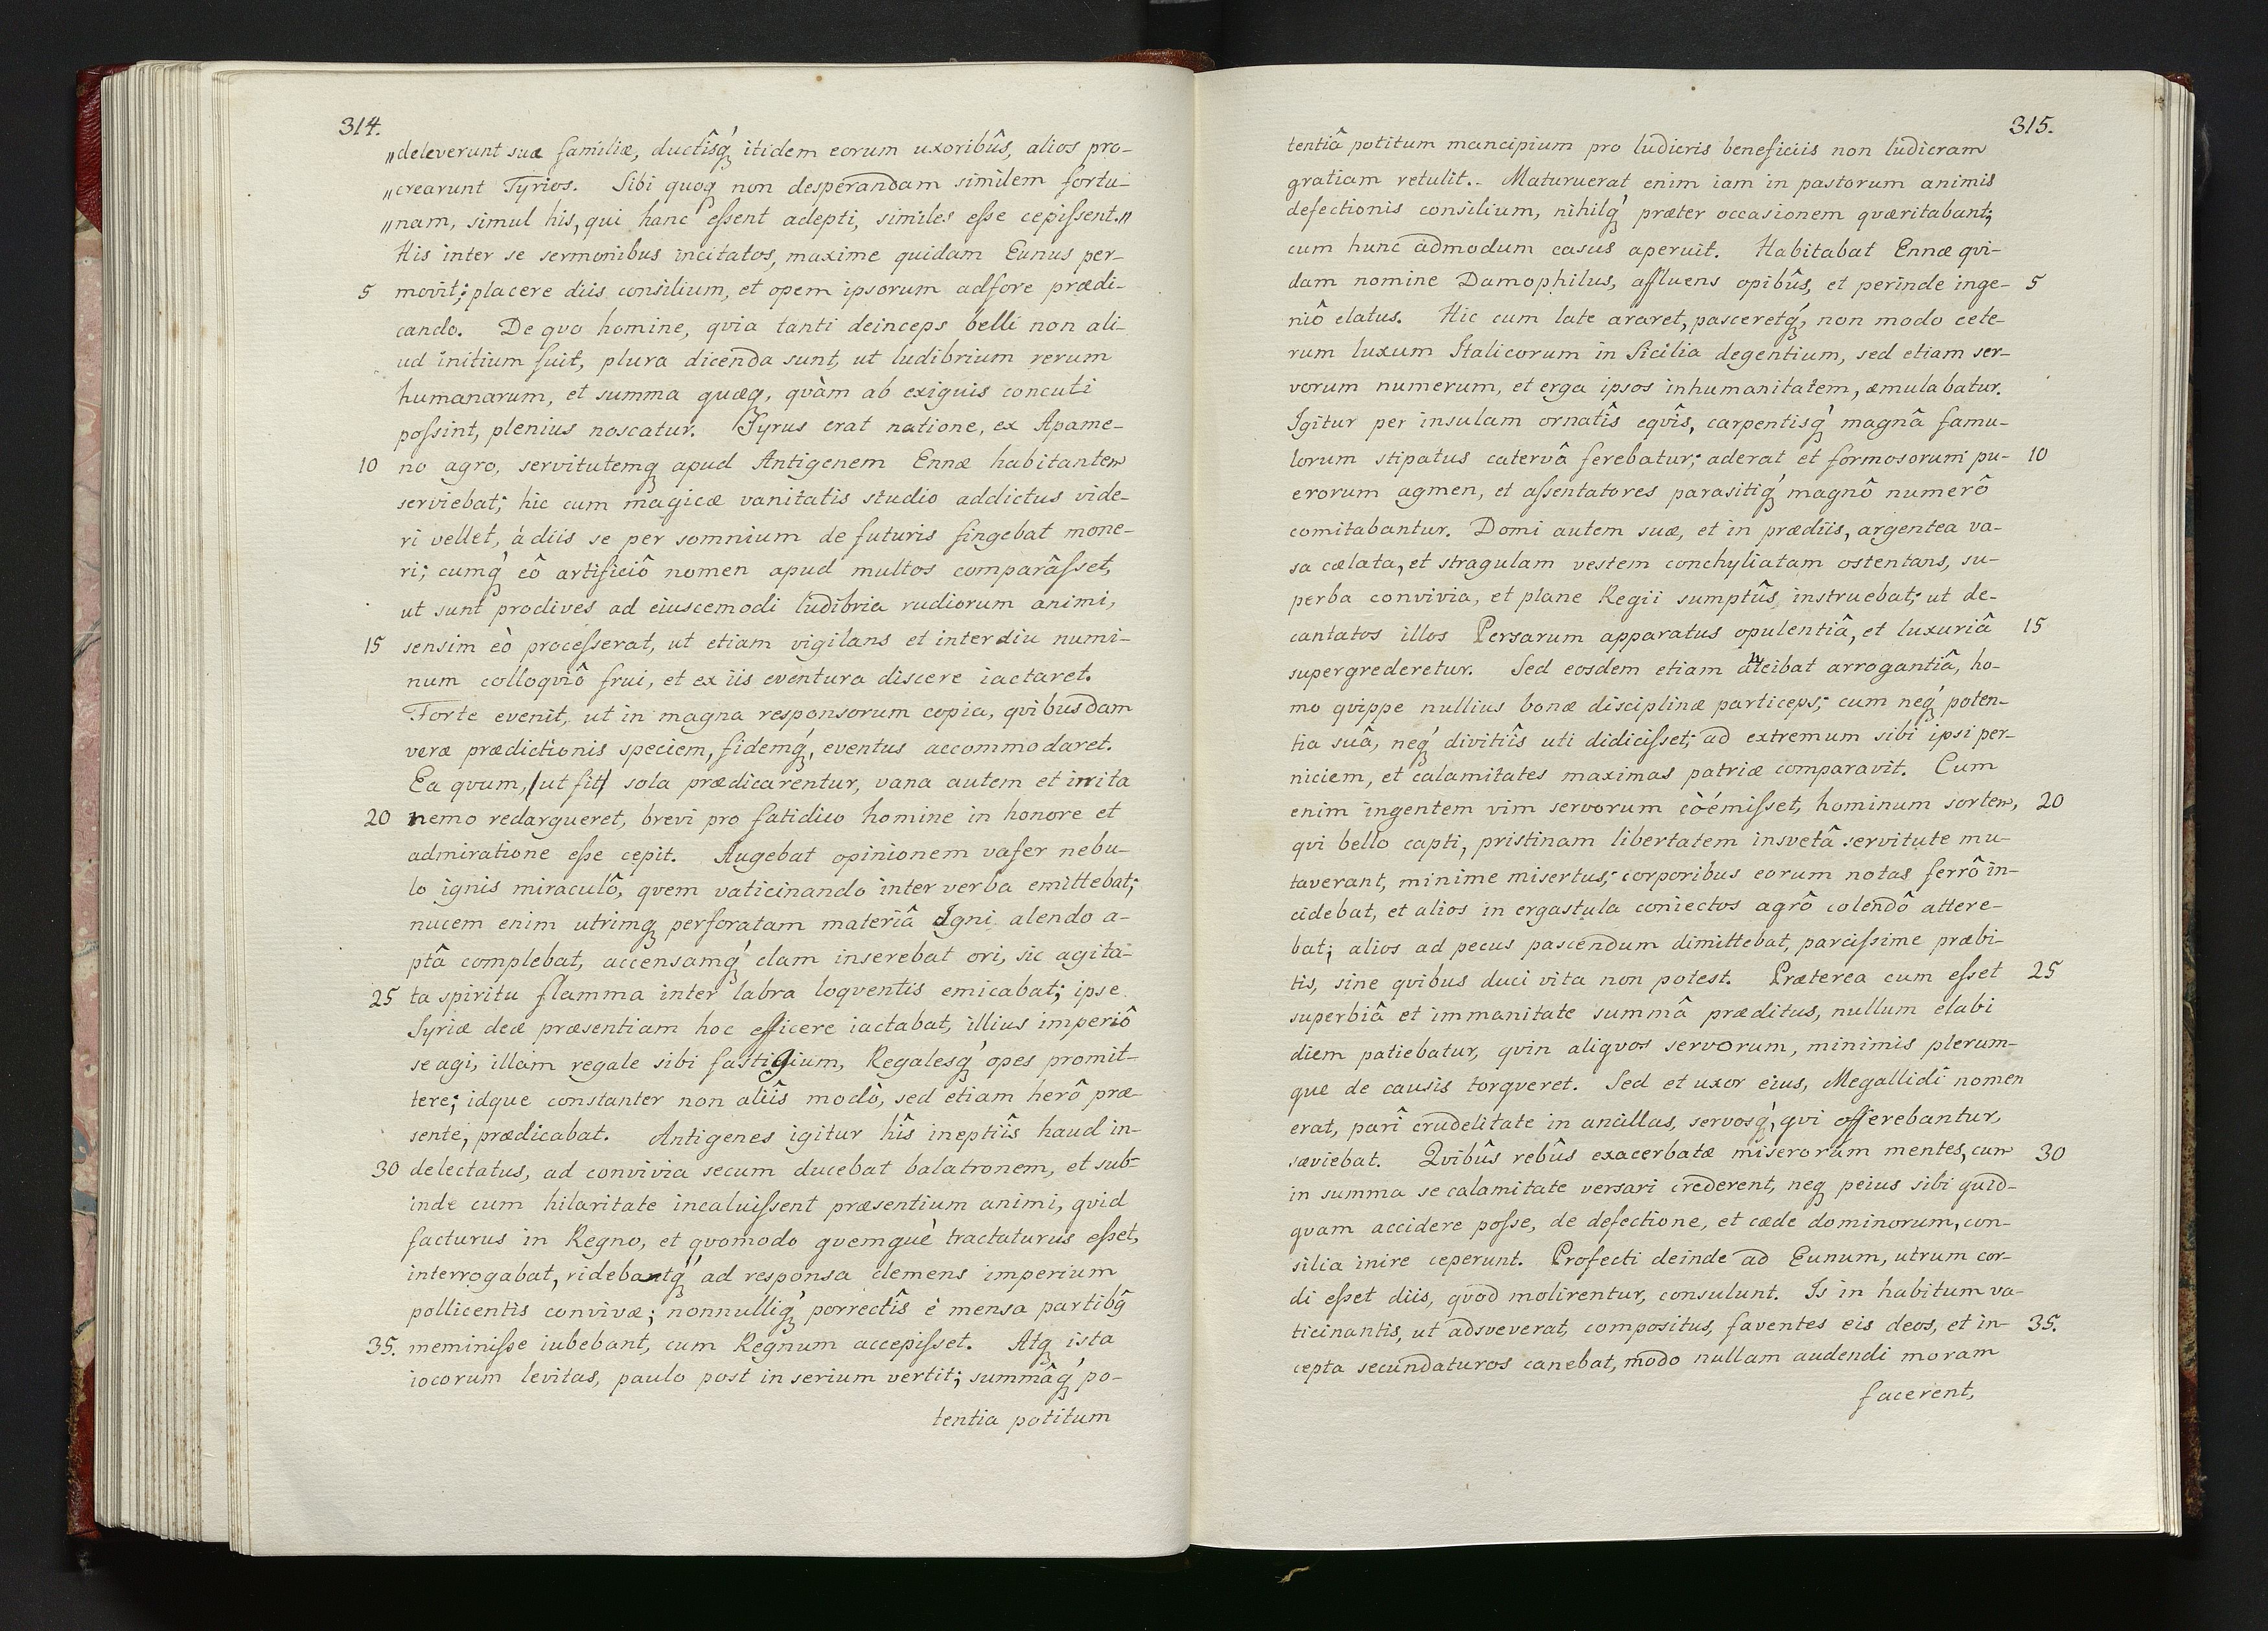 314.
„deleverunt suæ familiæ, ductîsq́ꝫ itidem eorum uxoribûs, alios pro-
„crearunt Tyrios. Sibi quoqꝫ non desperandam similem fortu-
„nam, simul his, qui hanc eſsent adepti, similes eſse cepiſsent.„
His inter se sermonibus incitatos, maxime quidam Eunus per-
5 movit; placere diis consilium, et opem ipsorum adfore prædi-
cando. De qvo homine, qvia tanti deinceps belli non ali-
ud initium fuit, plura dicenda sunt, ut ludibrium rerum
humanarum, et summa quæqꝫ, qvàm ab exiguis concuti
poſsint, plenius noscatur. Syrus erat natione, ex Apame-
10 no agro, servitutemqꝫ apud Antigenem Ennæ habitantem
serviebat; hic cum magicæ vanitatis studio addictus vide-
ri vellet, á diis se per somnium de futuris fingebat mone-
ri; cumq́ꝫ eô artificiô nomen apud multos comparâſset,
ut sunt proclives ad eiuscemodi ludibria rudiorum animi,
15 sensim eò proceſserat, ut etiam vigilans et interdiu numi-
num colloqviô frui, et ex iis eventura discere iactaret.
Forte evenit, ut in magna responsorum copia, qvibusdam
veræ prædictionis speciem, fidemq́ꝫ, eventus accommodaret.
Ea qvum, /ut fit/ sola prædicarentur, vana autem et irrita
20 nemo redargueret, brevi pro fatidico homine in honore et
admiratione eſse cepit. Augebat opinionem vafer nebu-
lo ignis miraculô, qvem vaticinando inter verba emittebat;
nucem enim utrimqꝫ perforatam materiâ Igni alendo a-
ptâ complebat, accensamq́ꝫ clam inserebat ori, sic agita-
25 ta spiritu flamma inter labra loqventis emicabat; ipse
Syriæ deæ præsentiam hoc efficere iactabat, illius imperiô
se agi, illam regale sibi fastigium, Regalesq́ꝫ opes promit-
tere; idque constanter non aliîs modô, sed etiam herô præ-
sente, prædicabat. Antigenes igitur hîs ineptiîs haud in-
30 delectatus, ad convivia secum ducebat balatronem, et sub-
inde cum hilaritate incaluiſsent præsentium animi, qvid
facturus in Regno, et qvomodo qvemqué tractaturus eſset,
interrogabat, ridebantq́ꝫ ad responsa clemens imperium
pollicentis convivæ; nonnulliq́ꝫ porrectîs è mensa partibꝰ
35. meminiſse iubebant, cum Regnum accepiſset. Atqꝫ ista
iocorum levitas, paulo post in serium vertit; summâq́ꝫ po-
tentia potitum
315.
tentiâ potitum mancipium pro ludicris beneficiis non ludicram
gratiam retulit. Maturuerat enim iam in pastorum animis
defectionis consilium, nihilq́ꝫ præter occasionem qværitabant;
cum hunc admodum casus aperuit. Habitabat Ennæ qvi-
dam nomine Damophilus, affluens opibûs, et perinde inge- 5
niô elatus. Hic cum late araret, pasceretq́ꝫ, non modo cete-
rum luxum Italicorum in Sicilia degentium, sed etiam ser-
vorum numerum, et erga ipsos inhumanitatem, æmulabatur.
Igitur per insulam ornatîs eqvîs, carpentisq́ꝫ magnâ famu-
lorum stipatus catervâ ferebatur; aderat et formosorum pu- 10
erorum agmen, et aſsentatores parasitiq́ꝫ magnô numerô
comitabantur. Domi autem suæ, et in prædiis, argentea va-
sa cælata, et stragulam vestem conchyliatam ostentans, su-
perba convivia, et plane Regii sumptûs instruebat; ut de-
cantatos illos Persarum apparatus opulentiâ, et luxuriâ 15
supergrederetur. Sed eosdem etiam aiebat arrogantiâ, ho-
mo qvippe nullius bonæ disciplinæ particeps; cum neq́ꝫ poten-
tia suâ, neq́ꝫ divitiîs uti didiciſset; ad extremum sibi ipsi per-
niciem, et calamitates maximas patriæ comparavit. Cum
enim ingentem vim servorum còémiſset, hominum sortem, 20
qvi bello capti, pristinam libertatem insvetâ servitute mu-
taverant, minime misertus; corporibus eorum notas ferrô in-
cidebat, et alios in ergastula coniectos agrô colendô attere-
bat; alios ad pecus pascendum dimittebat, parciſsime præbi-
tis, sine qvibus duci vita non potest. Præterea cum eſset 25
superbiâ et immanitate summâ præditus, nullum elabi
diem patiebatur, qvin aliqvos servorum, minimis plerum-
que de causis torqveret. Sed et uxor eius, Megallidi nomen
erat, parî crudelitate in ancillas, servosq́ꝫ, qvi offerebantur,
sæviebat. Qvibûs rebûs exacerbatæ miserorum mentes, cum 30
in summa se calamitate versari crederent, neqꝫ peius sibi quid-
qvam accidere poſse, de defectione, et cæde dominorum, con-
silia inire ceperunt. Profecti deinde ad Eunum, utrum cor-
di eſset diis, qvod molirentur, consulunt. Is in habitum va-
ticinantis, ut adsveverat, compositus, faventes eis deos, et in- 35.
cepta secundaturos canebat, modo nullam audendi moram
facerent,